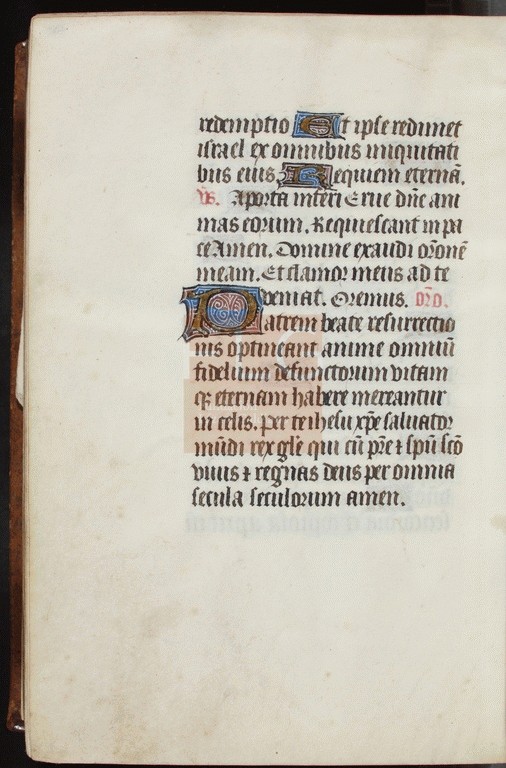 redemptio Et ipse redimet
israel ex omnibus iniquitati
bus eius. Requiem eternā.
vs. A porta inferi Erue dn̄e ani
mas eorum. Requiescant in pa
ce Amen. Domine exaudi or̄onē
meam. Et clamor meus ad te
veniat. Oremus. or̄o.
Patrem beate resurrectio
nis optineant anime omniū
fidelium defunctorum vitam
qz eternam habere mereantur
in celis. Per te ihesu xp̄e saluator
mūdi rex gl̄e qui cū pr̄e ⁊ sp̄u sc̄o
viuis ⁊ regnas deus per omnia
secula seculorum amen.